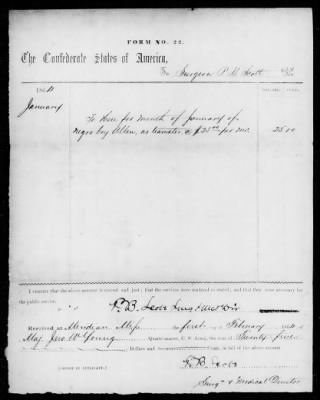 FORM NO. 22.
The Confederate States of America,
To Surgeon P. B. Scott Dr.
DOLLARS. CENTS.
1864
January
To Hire for month of January of
negro boy Allen, as teamster @ $25.00 per mo. 25 00
I CERTIFY that the above account is correct and just; that the services were rendered as stated; and that they were necessary for
the public service.
P. B. Scott Surg & Med Dir
Received at Meridian Miss the first of February 1864 of
Maj. Jno. W. Young Quartermaster, C. S. Army, the sum of Twenty five
Dollars and Cents, in full of the above account.
(SIGNED IN DUPLICATE.)
P. B. Scott
Surg. & Medical Director